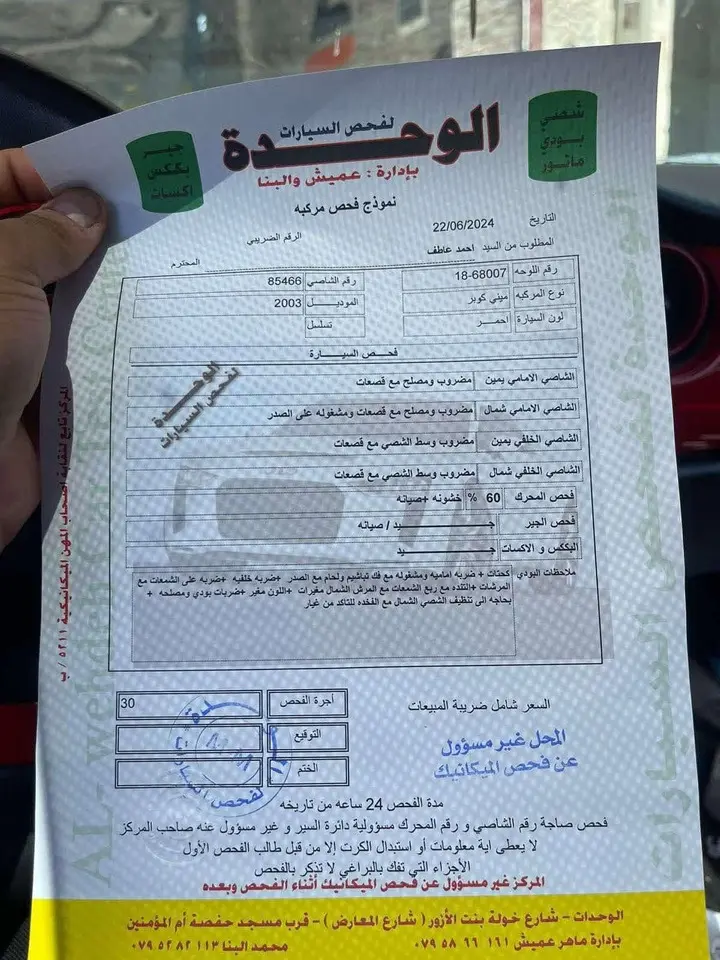 شصي
بودي
ماتور
الوحدة
لفحص السيارات
بإدارة : عميش والبنا
جير
بككس
اكسات
نموذج فحص مركبه
التاريخ 22/06/2024
الرقم الضريبي
المطلوب من السيد احمد عاطف المحترم
رقم اللوحه 18-68007 رقم الشاصي 85466
نوع المركبه ميني كوبر الموديل 2003
لون السيارة احمر تسلسل
فحص السيارة
الشاصي الامامي يمين مضروب ومصلح مع قصعات
الشاصي الامامي شمال مضروب ومصلح مع قصعات ومشغوله على الصدر
الشاصي الخلفي يمين مضروب وسط الشصي مع قصعات
الشاصي الخلفي شمال مضروب وسط الشصي مع قصعات
فحص المحرك 60 % خشونه +صيانه
فحص الجير جيد / صيانه
البككس و الاكسات جيد
ملاحظات البودي كحتات + ضربه اماميه ومشغوله مع فك تباشيم ولحام مع الصدر +ضربه خلفيه +ضربه على الشمعات مع
المرشات +التنده مع ربع الشمعات مع المرش الشمال مغيرات +اللون مغير +ضربات بودي ومصلحه +
بحاجه الى تنظيف الشصي الشمال مع الفخده للتاكد من غيار
الوحدة
لفحص السيارات
السعر شامل ضريبة المبيعات
أجرة الفحص 30
التوقيع
الختم
المحل غير مسؤول
عن فحص الميكانيك
لفحص السيارات
مدة الفحص 24 ساعه من تاريخه
فحص صاجة رقم الشاصي و رقم المحرك مسؤولية دائرة السير و غير مسؤول عنه صاحب المركز
لا يعطى اية معلومات أو استبدال الكرت إلا من قبل طالب الفحص الأول
الأجزاء التي تفك بالبراغي لا تذكر بالفحص
المركز غير مسؤول عن فحص الميكانيك أثناء الفحص وبعده
الوحدات - شارع خولة بنت الأزور ( شارع المعارض ) - قرب مسجد حفصة أم المؤمنين
بإدارة ماهر عميش ١٦١ ٩٦ ٥٨ ٠٧٩ محمد البنا ١١٣ ٨٢ ٥٢ ٠٧٩
المركز تابع لنقابة اصحاب المهن الميكانيكية ٥٢١١ / ب